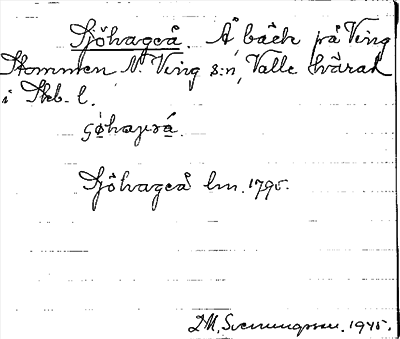 Sjöhageå. Å, bäck på Ving
Stommen N. Ving s:n, Valle härad
i Skb. l.
Sjöhageå lm. 1795.
I.M. Svenungsson. 1945.